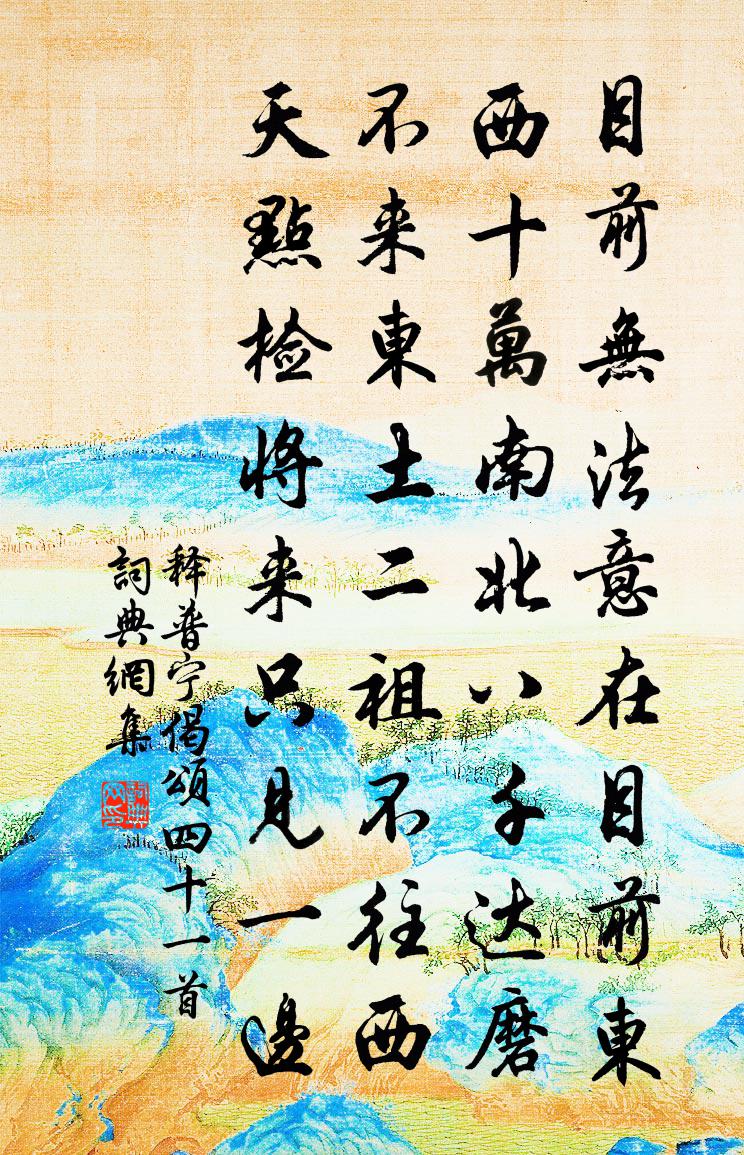 目前無法意在目前東
西十萬南北八千达磨
不来東土二祖不往西
天點檢将来只見一邊
释普宁偈頌四十一首
詞典網集